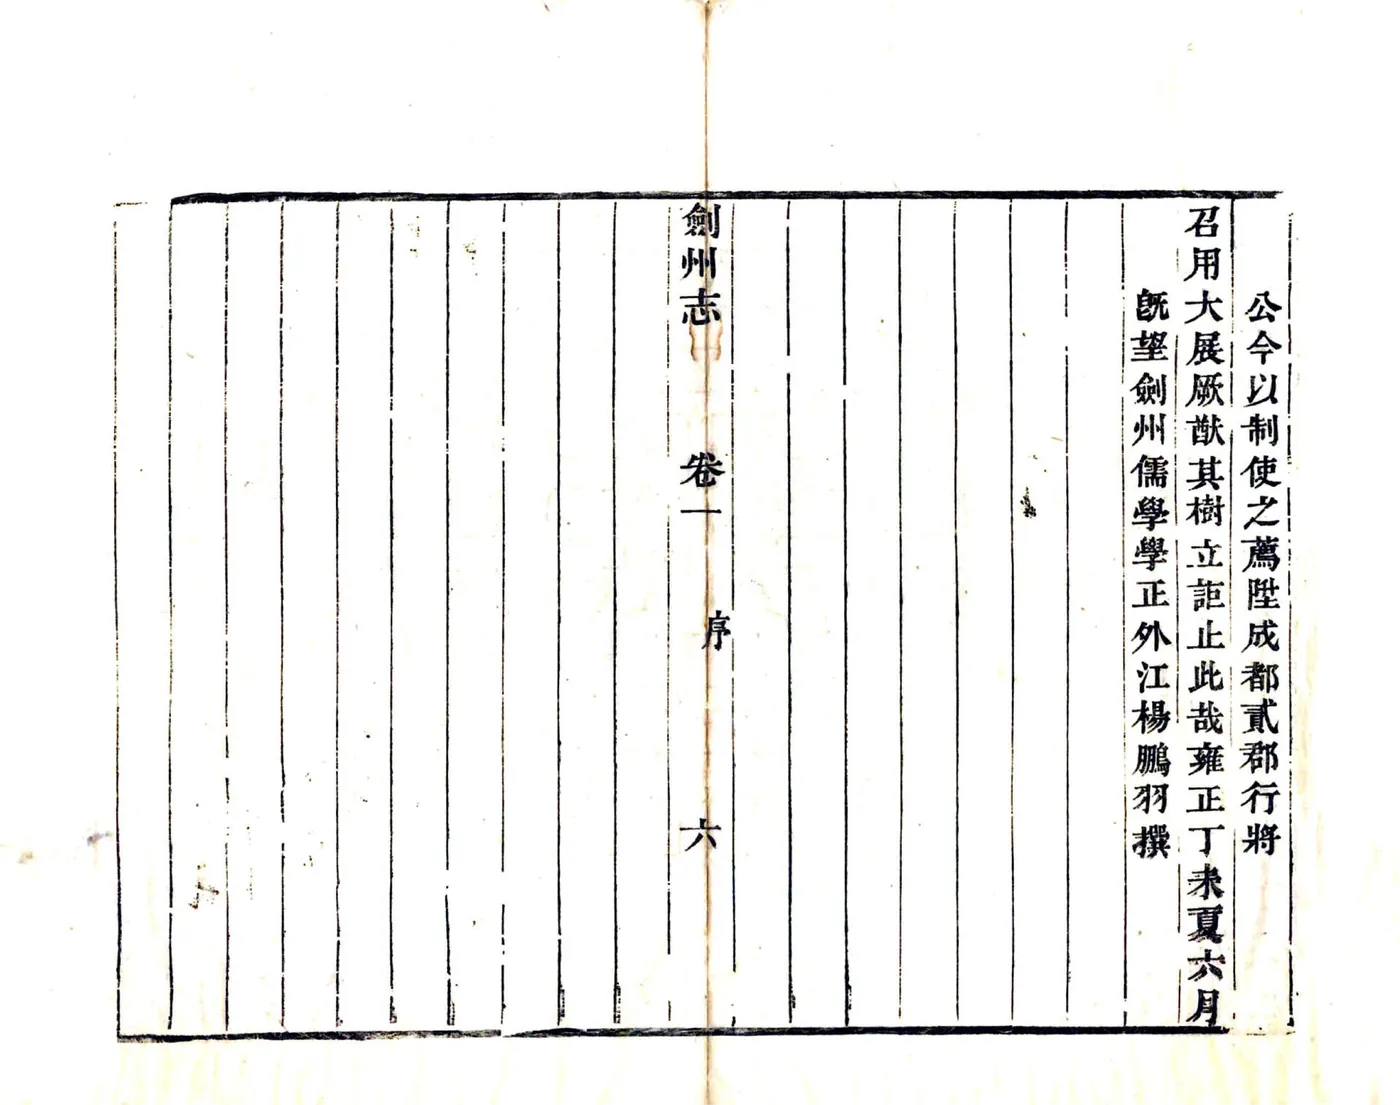 公今以制使之薦陞成都貳郡行將
召用大展厥猷其樹立詎止此哉雍正丁未夏六月
旣望劍州儒學學正外江楊鵬羽撰
劍州志 卷一 序 六